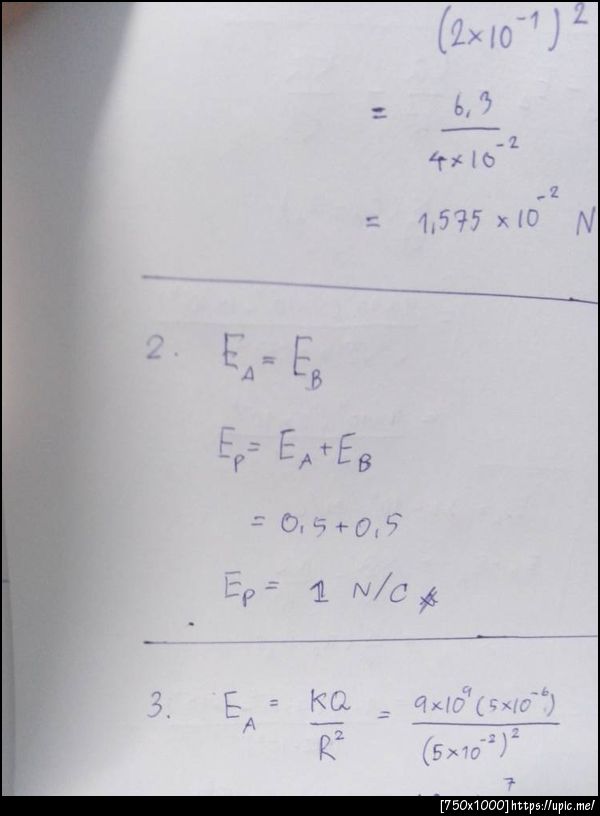 (2×10⁻¹)²
= 6,3 / 4×10⁻²
= 1,575 ×10⁻² N
2. E_A = E_B
E_P = E_A + E_B
= 0,5 + 0,5
E_P = 1 N/C
3. E_A = KQ / R² = 9×10⁹ (5×10⁻⁶) / (5×10⁻²)²
7
[750x1000]https://upic.me/